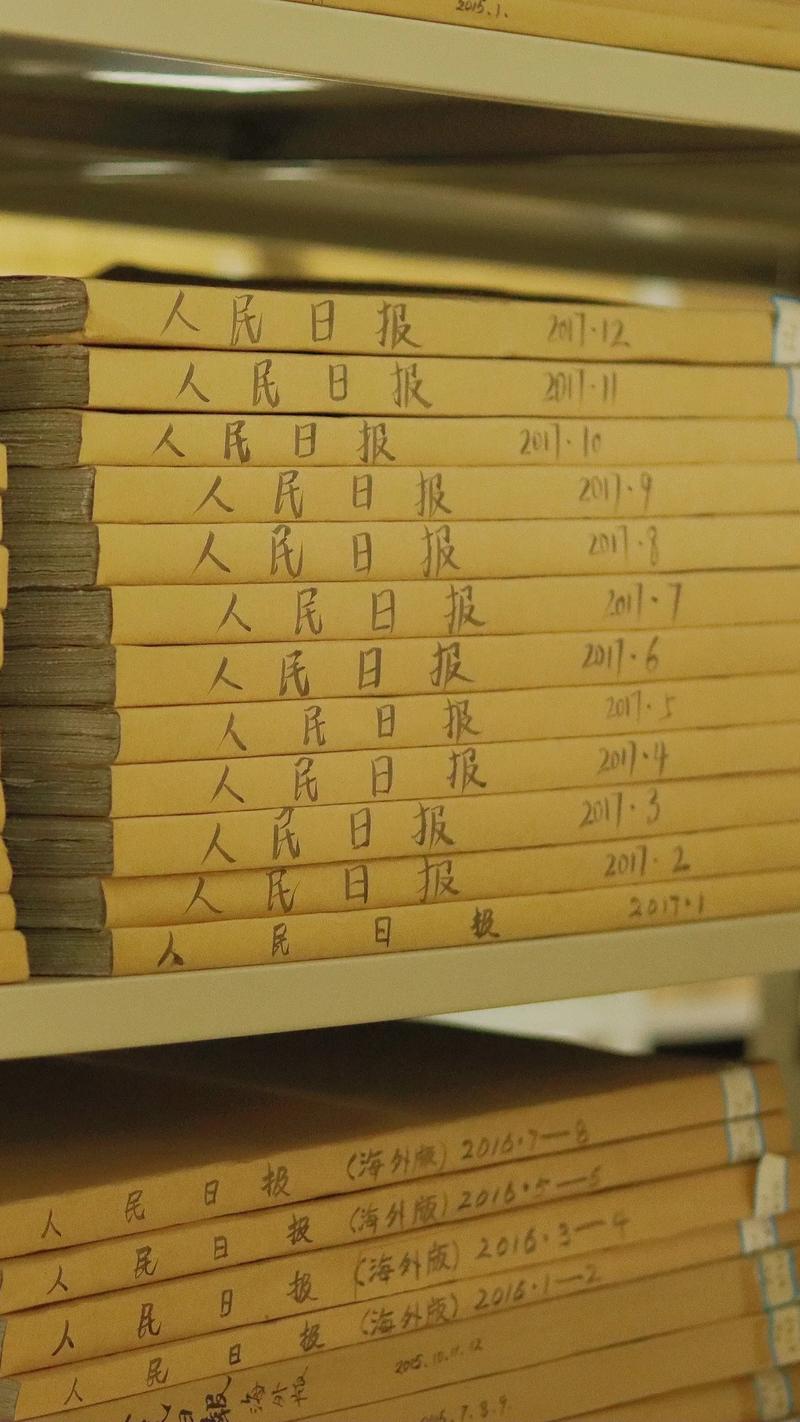 2015.1.
人民日报 2017·12
人民日报 2017·11
人民日报 2017·10
人民日报 2017·9
人民日报 2017·8
人民日报 2017·7
人民日报 2017·6
人民日报 2017·5
人民日报 2017·4
人民日报 2017·3
人民日报 2017·2
人民日报 2017·1
人民日报 (海外版) 2016·7—8
人民日报 (海外版) 2016·5—6
人民日报 (海外版) 2016·3—4
人民日报 (海外版) 2016·1—2
人 2015.10.11.12
日報
7.8.9